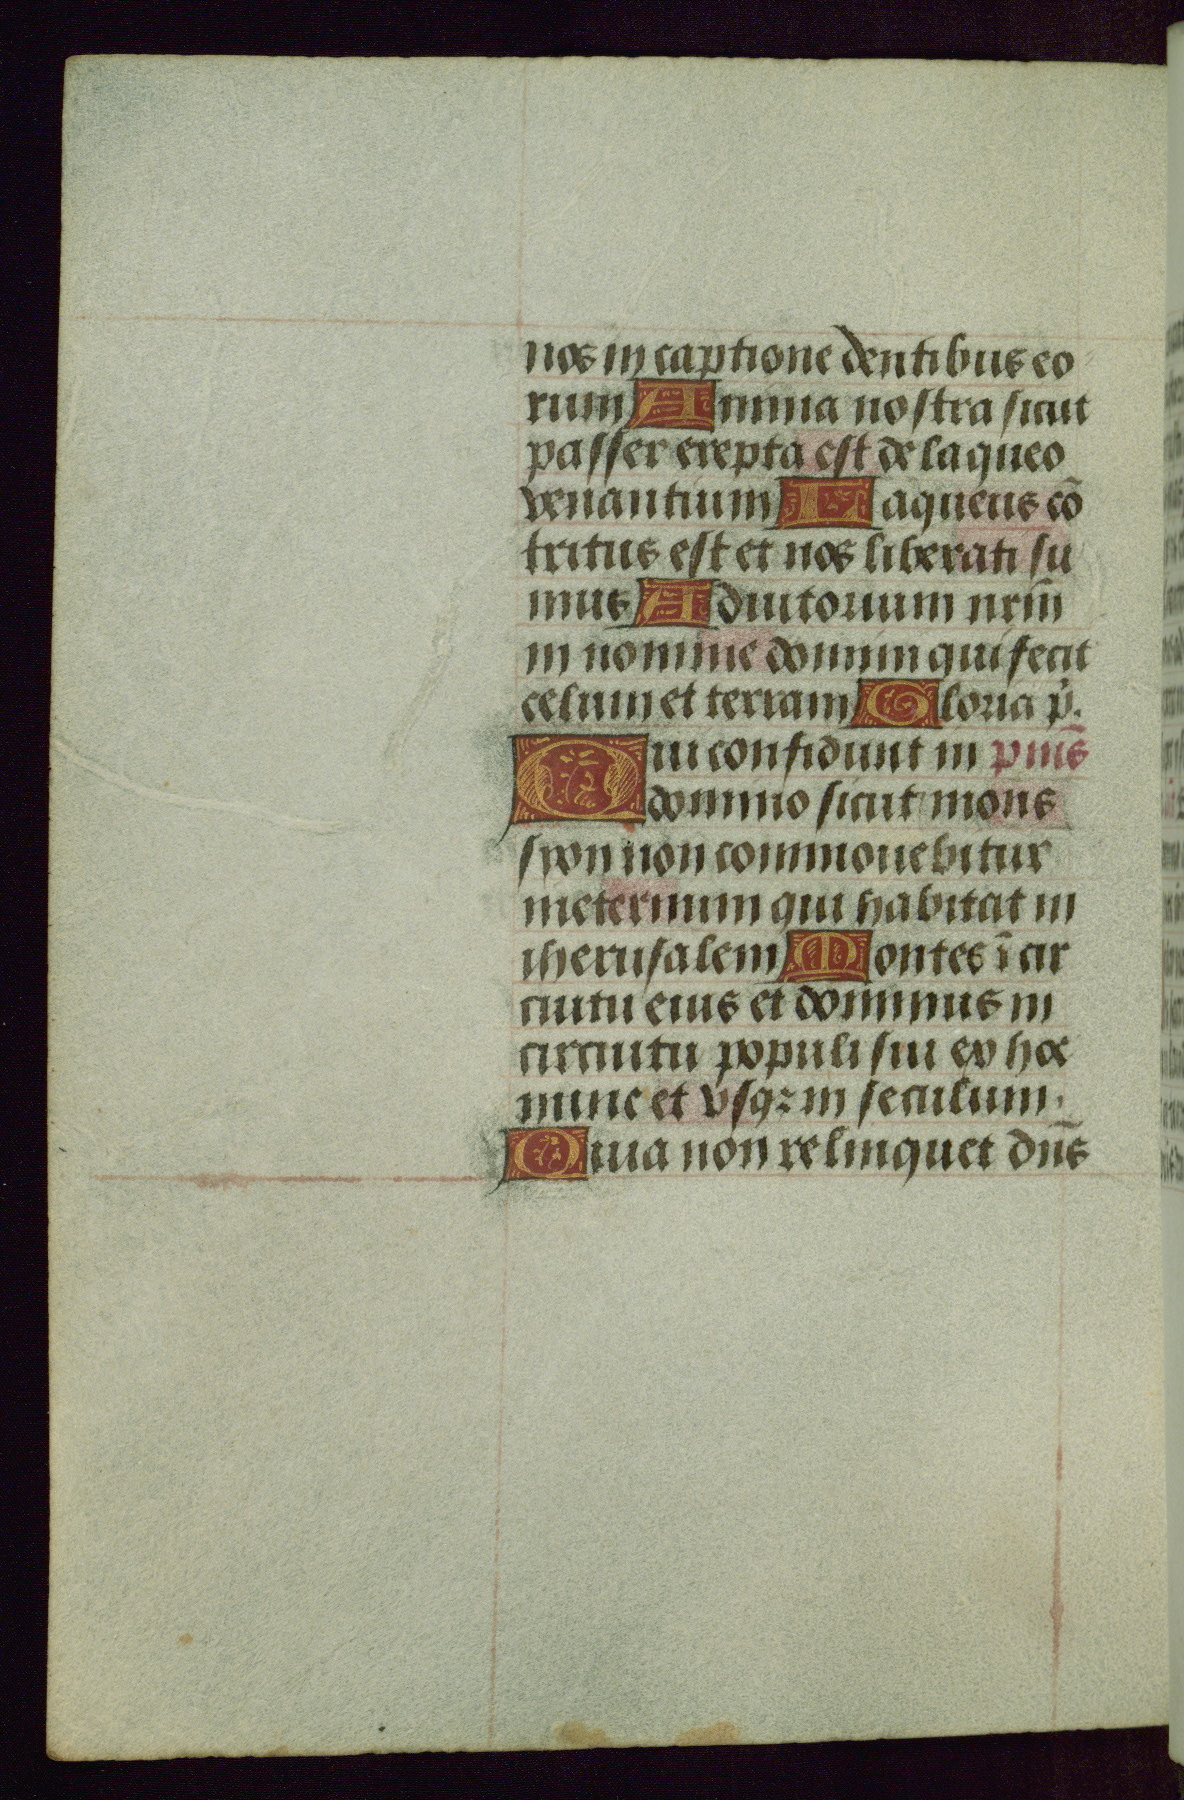 nos in captione dentibus eo
rum Anima nostra sicut
passer erepta est de laqueo
venantium Laqueus cō
tritus est et nos liberati su
mus Adiutorium nrm̄
in nomine domini qui fecit
celum et terram Gloria p̄.
Qui confidunt in pms̄
domino sicut mons
syon non commouebitur
ineternum qui habitat in
iherusalem Montes ī cir
cuitu eius et dominus in
circuitu populi sui ex hoc
nunc et vsqꝫ in seculum.
Quia non relinquet dns̄